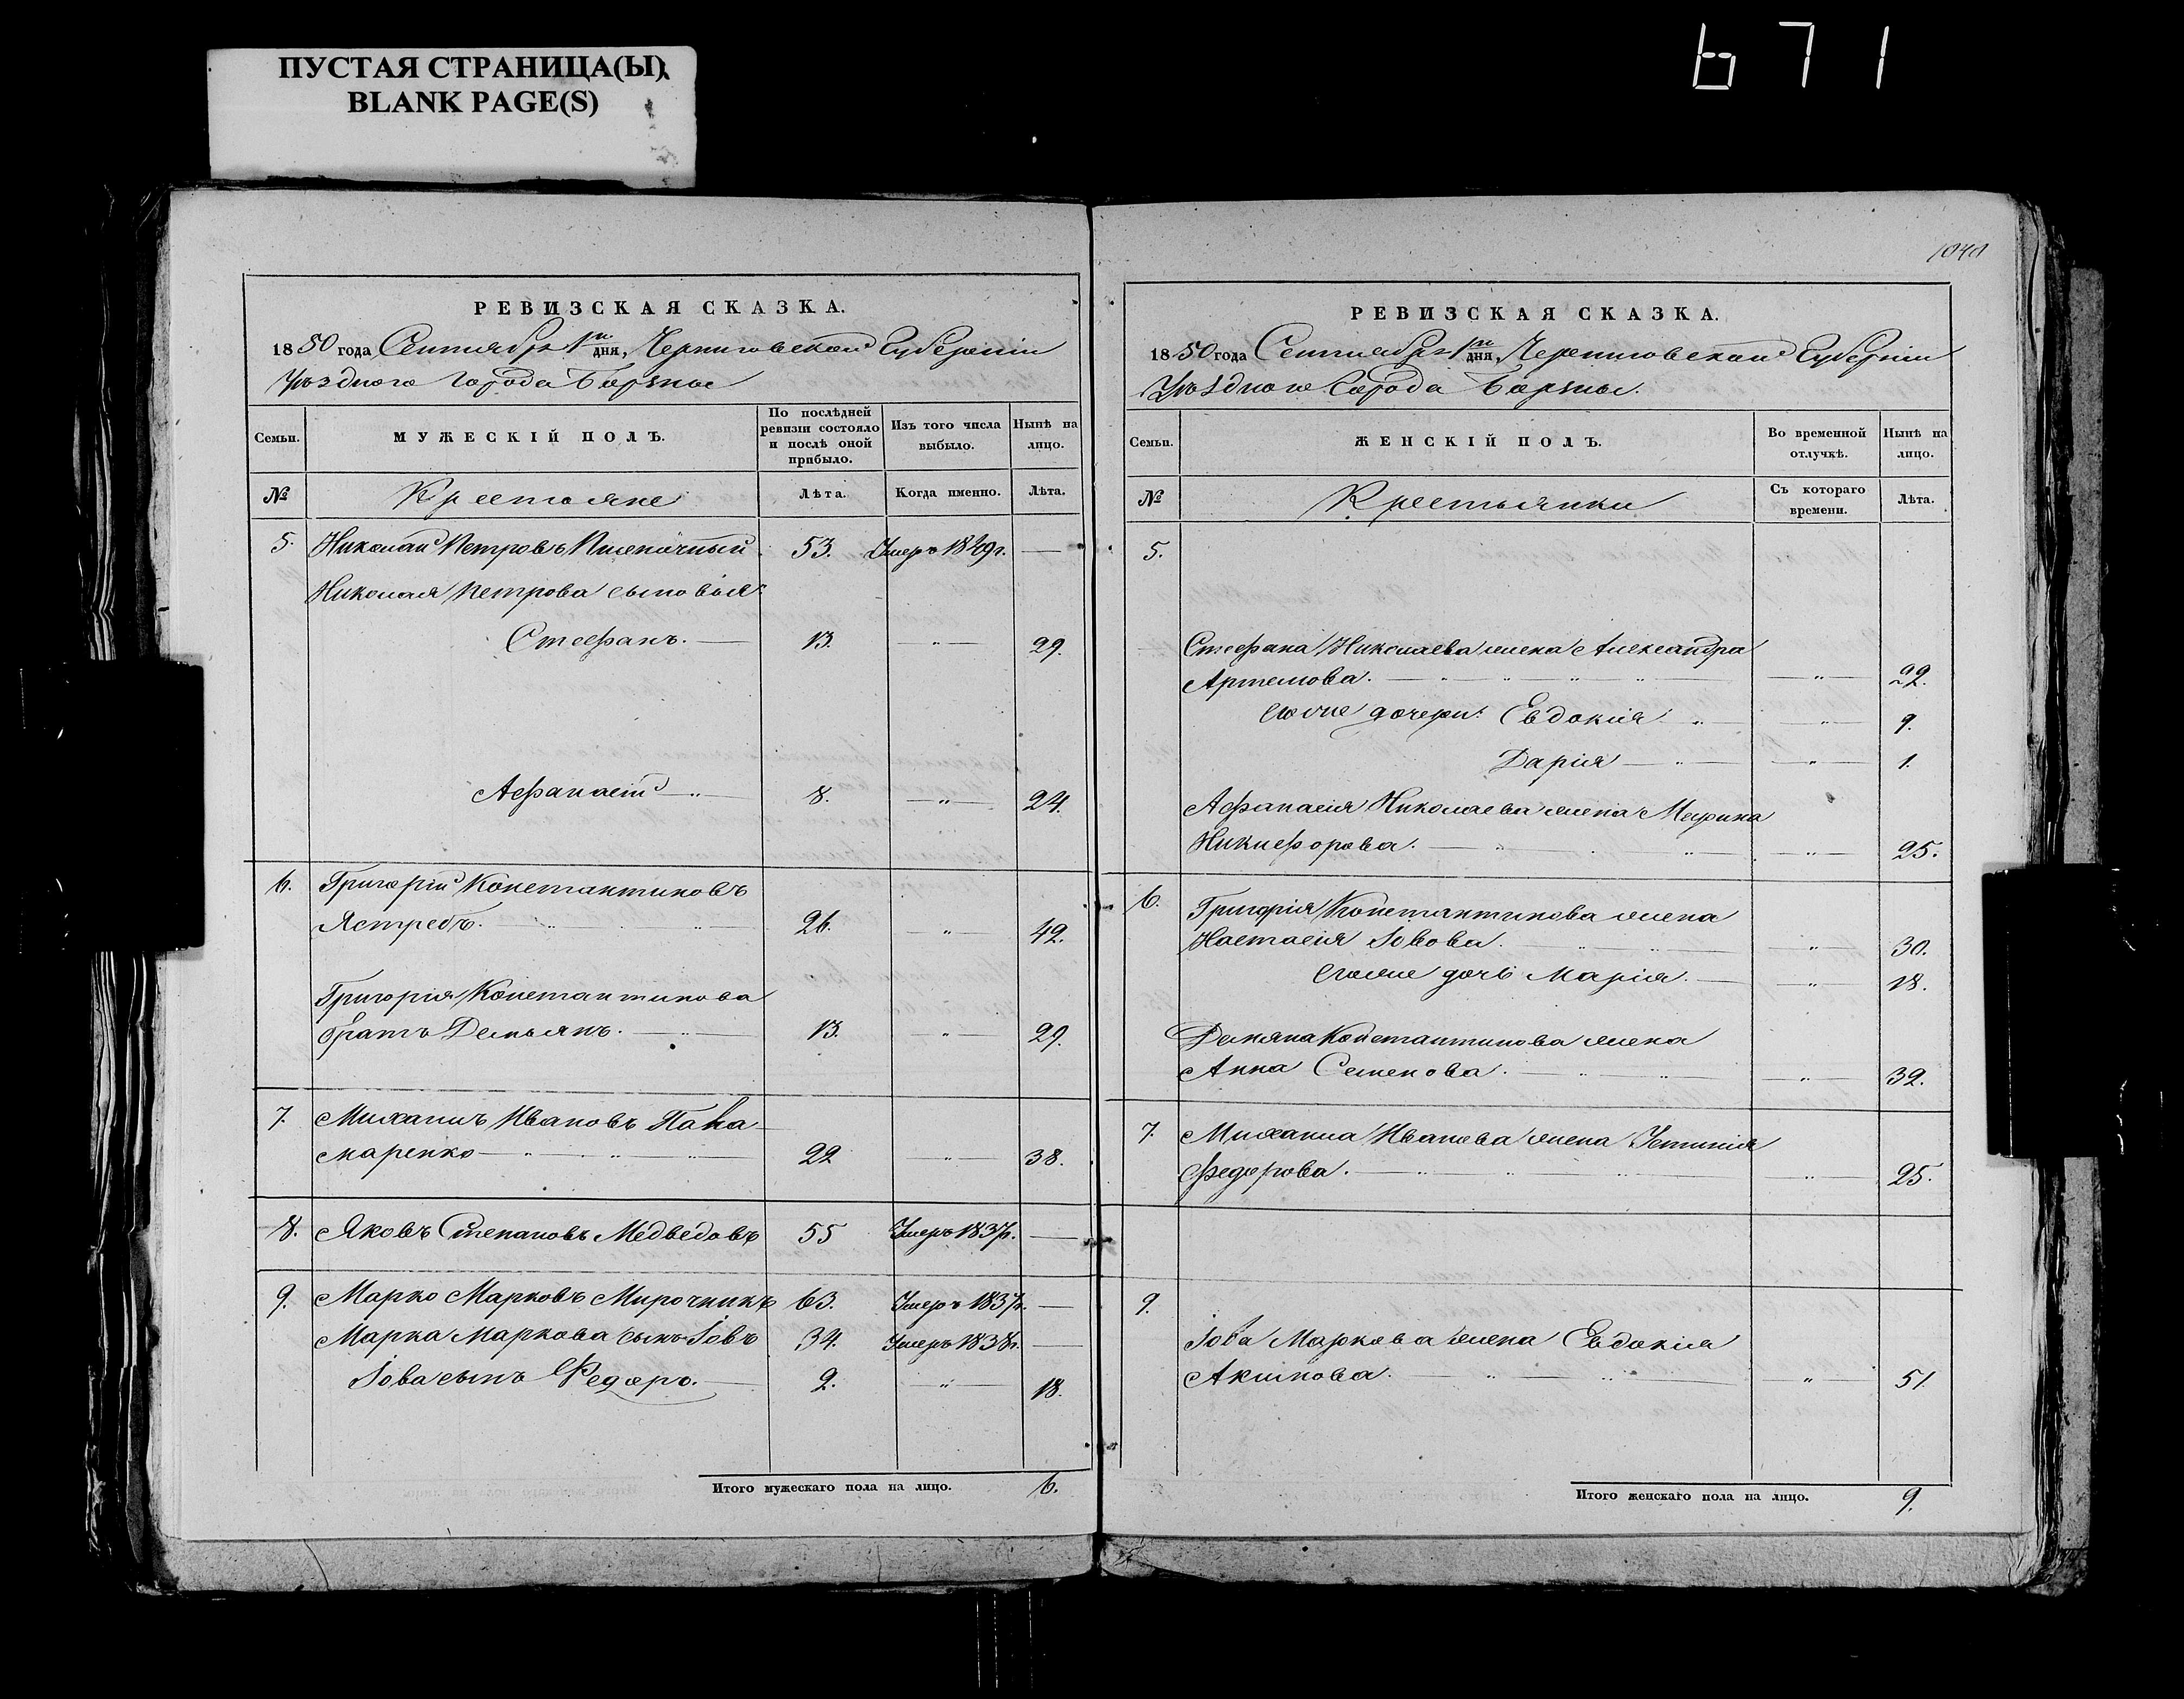 ПУСТАЯ СТРАНИЦА(Ы)
BLANK PAGE(S)
671
РЕВИЗСКАЯ СКАЗКА.
1850 года Сентября 1го дня, Черниговской Губерніи
Уѣзднаго Города Борзны
Семьи. МУЖЕСКІЙ ПОЛЪ. По послѣдней ревизіи состояло и послѣ оной прибыло. Изъ того числа выбыло. Нынѣ на лицо.
№ Крестьяне Лѣта. Когда именно. Лѣта.
5. Николай Петровъ 53. Умеръ 1849г. —
Николая Петрова сыновья:
Стефанъ. — 13. " — 29.
Афанасій — " 8. — " — 24.
6. Григорій Константиновъ
Ястребъ. 26. — " — 42.
Григорія Константинова
братъ Демьянъ. — 13. " — 29.
7. Михаилъ Ивановъ Пана-
маренко — 22 — " — 38.
8. Яковъ Степановъ Медведовъ 55 Умеръ 1837г. —
9. Марко Марковъ Мирочникъ 63. Умеръ 1837г. —
Марка Маркова сынъ Іовъ 34. Умеръ 1838г. —
Іова сынъ Федоръ. — 2. " — 18.
Итого мужескаго пола на лицо. 6.
РЕВИЗСКАЯ СКАЗКА.
1850 года Сентября 1го дня, Черниговской Губерніи
Уѣзднаго Города Борзны.
Семьи. ЖЕНСКІЙ ПОЛЪ. Во временной отлучкѣ. Нынѣ на лицо.
№ Крестьянки Съ котораго времени. Лѣта.
5.
Стефана Николаева жена Александра
Артемова. — " — 29.
его же дочери: Евдокія " — " — 9.
Дарія — " — " — 1.
Афанасія Николаева жена Марина
Никифорова. — " — 25.
6. Григорія Константинова жена
Настасія Іовова. " — 30.
его же дочь Марія. — " — 18.
Демяна Константинова жена
Анна Семенова. — " — 32.
7. Михаила Иванова жена Устинія
Федорова. — " — 25.
9.
Іова Маркова жена Евдокія
Акимова. " — 51.
Итого женскаго пола на лицо. 9.